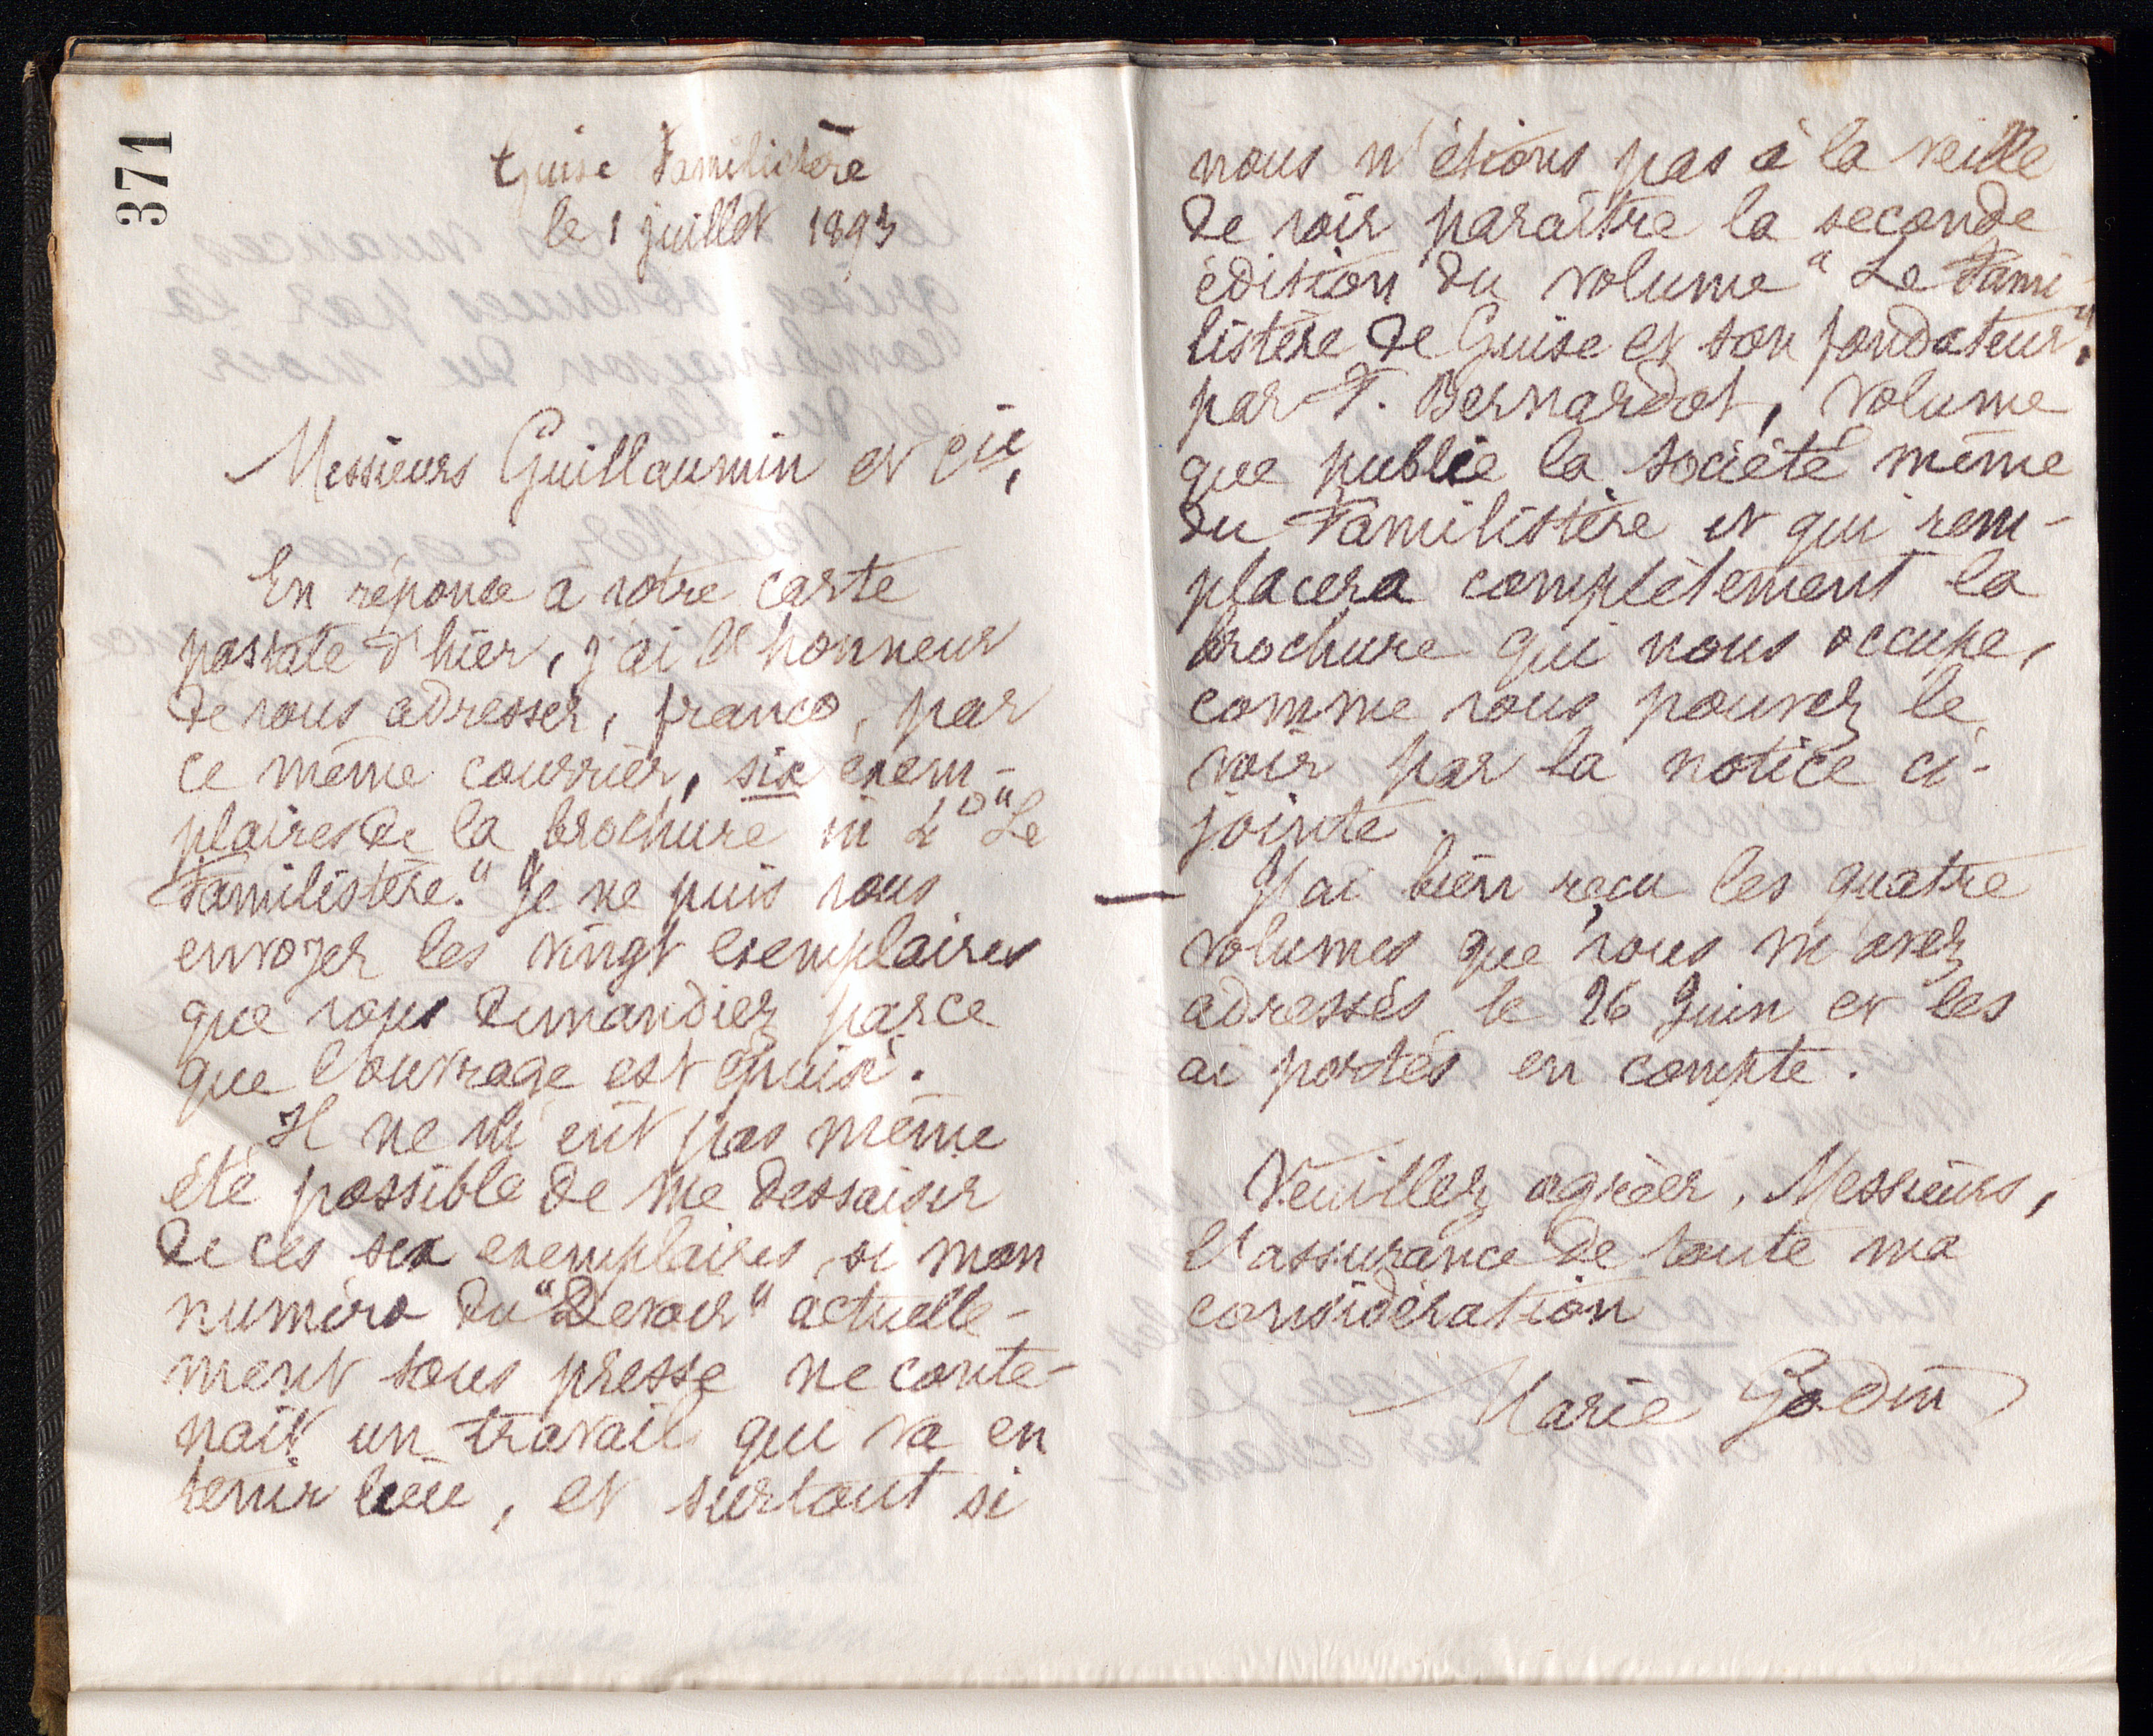 371
Guise Familistère
le 1 juillet 1893
Messieurs Guillaumin et Cie,
En réponse à votre carte
postale d'hier, j'ai l'honneur
de vous adresser, franco, par
ce même courrier, six exem-
plaires de la brochure in 4o "Le
Familistère." Je ne puis vous
envoyer les vingt exemplaires
que vous demandiez parce
que l'ouvrage est épuisé.
Il ne m'eût pas même
été possible de me dessaisir
de ces six exemplaires si mon
numéro du "Devoir" actuelle-
ment sous presse ne conte-
nait un travail qui va en
tenir lieu, et surtout si
nous n'étions pas à la veille
de voir paraître la seconde
édition du volume "Le Fami-
listère de Guise et son fondateur",
par F. Bernardot, volume
que publie la société même
du Familistère et qui rem-
placera complètement la
brochure qui nous occupe,
comme vous pouvez le
voir par la notice ci-
jointe.
J'ai bien reçu les quatre
volumes que vous m'avez
adressés le 26 Juin et les
ai portés en compte.
Veuillez agréer, Messieurs,
l'assurance de toute ma
considération
Marie Godin